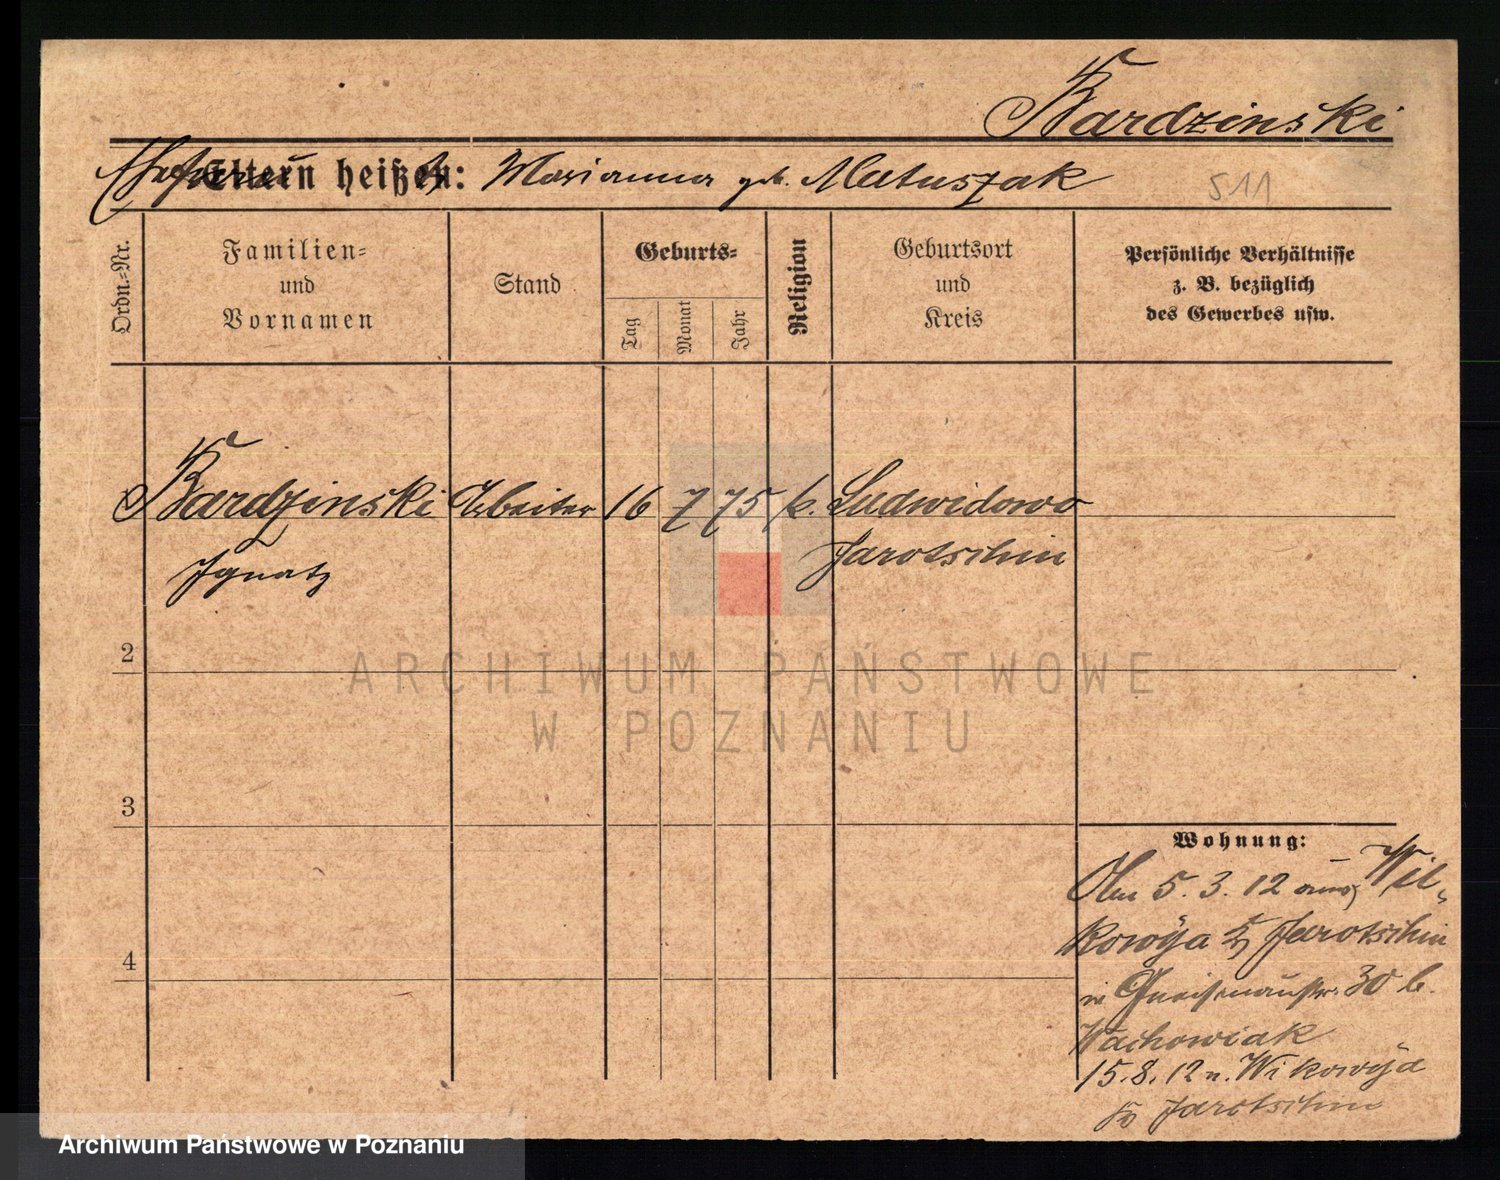 Bardzinski
Ehefrau Eltern heißen: Marianna geb. Matuszak
511
Ordn.-Nr.
Familien-
und
Vornamen
Stand
Geburts-
Tag
Monat
Jahr
Religion
Geburtsort
und
Kreis
Persönliche Verhältnisse
z. B. bezüglich
des Gewerbes usw.
Bardzinski Arbeiter 16 7 75 k. Ludwidowo
Ignatz Jarotschin
2
3
4
Wohnung:
5. 3. 12 aus Wil-
kowyja Jarotschin
in Gneisenaustr. 30 b.
Wachowiak
15.8.12 n. Wikowyja
Jarotschin
ARCHIWUM PAŃSTWOWE
W POZNANIU
Archiwum Państwowe w Poznaniu